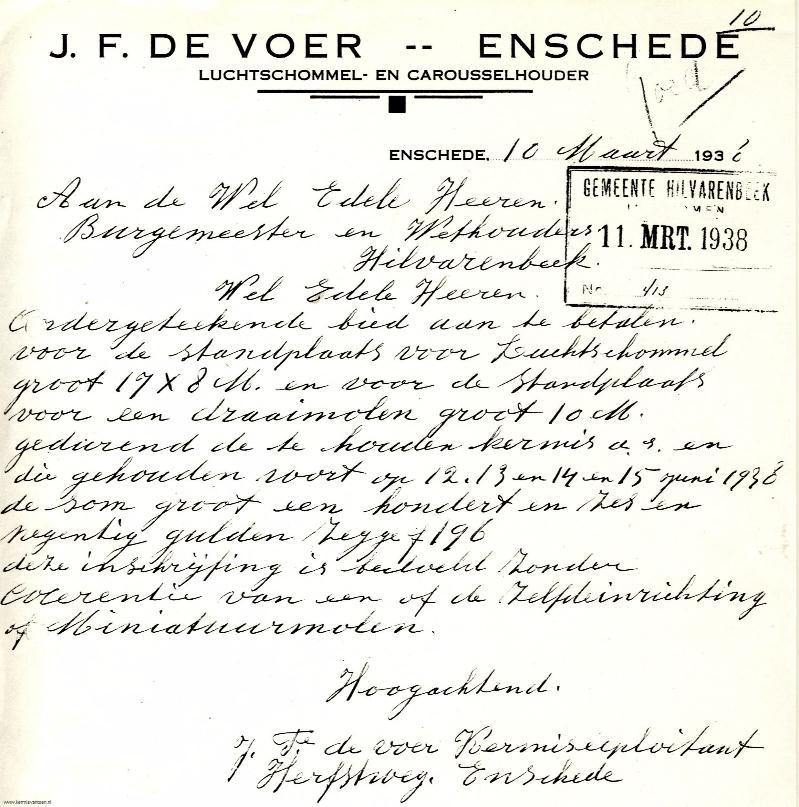 10
J. F. DE VOER -- ENSCHEDE
LUCHTSCHOMMEL- EN CAROUSSELHOUDER
Goed
ENSCHEDE, 10 Maart 1938
Aan de Wel Edele Heeren.
GEMEENTE HILVARENBEEK
Burgemeester en Wethouders
11. MRT. 1938
Hilvarenbeek.
No.
Wel Edele Heeren.
Ondergeteekende bied aan te betalen.
voor de standplaats voor Luchtschommel
groot 17 X 8 M. en voor de standplaats
voor een draaimolen groot 10 M.
gedurend de te houden kermis a. s. en
die gehouden wort op 12. 13 en 14 en 15 juni 1938
de som groot een hondert en zes en
negentig gulden zegge f 196
deze inschrijfing is bedoeld zonder
of de zelfdeinrichting
of Miniatuurmolen.
Hoogachtend.
J. Fe de voer Kermisexploitant
Herfstweg. Enschede
www.kermisvantoen.nl